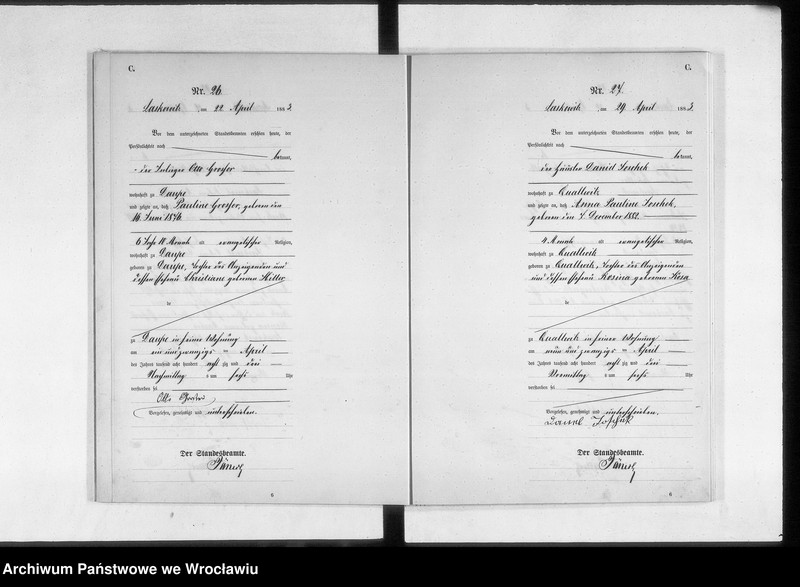 C.
Nr. 26.
Laskowitz, am 22 April 1883.
Vor dem unterzeichneten Standesbeamten erschien heute, der
Persönlichkeit nach
bekannt,
der Inlieger Otto
wohnhaft zu
und zeigte an, daß Pauline geboren den
14. Juni 1876
6 Jahr 10 Monat alt evangelischer Religion,
wohnhaft zu
geboren zu Tochter des Anzeigenden und
dessen Ehefrau Christiane geborenen
zu in seiner Wohnung
am ein und zwanzigsten April
des Jahres tausend acht hundert achtzig und drei
Nachmittag um sechs Uhr
verstorben sei
Vorgelesen, genehmigt und unterschrieben.
Otto
Der Standesbeamte.
6
C.
Nr. 27.
Laskowitz, am 29 April 1883.
Vor dem unterzeichneten Standesbeamten erschien heute, der
Persönlichkeit nach
bekannt,
der Häusler Daniel
wohnhaft zu
und zeigte an, daß Anna Pauline
geboren den 7. December 1882
4 Monat alt evangelischer Religion,
wohnhaft zu
geboren zu Tochter des Anzeigenden
und dessen Ehefrau Rosina geborenen
zu in seiner Wohnung
am neun und zwanzigsten April
des Jahres tausend acht hundert achtzig und drei
Vormittag um sechs Uhr
verstorben sei
Vorgelesen, genehmigt und unterschrieben.
Daniel
Der Standesbeamte.
6
Archiwum Państwowe we Wrocławiu